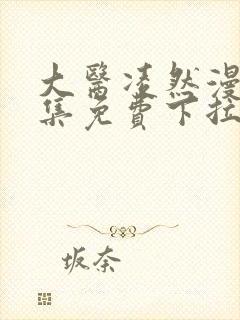 大醫凌然漫
集免費下拉
坂奈